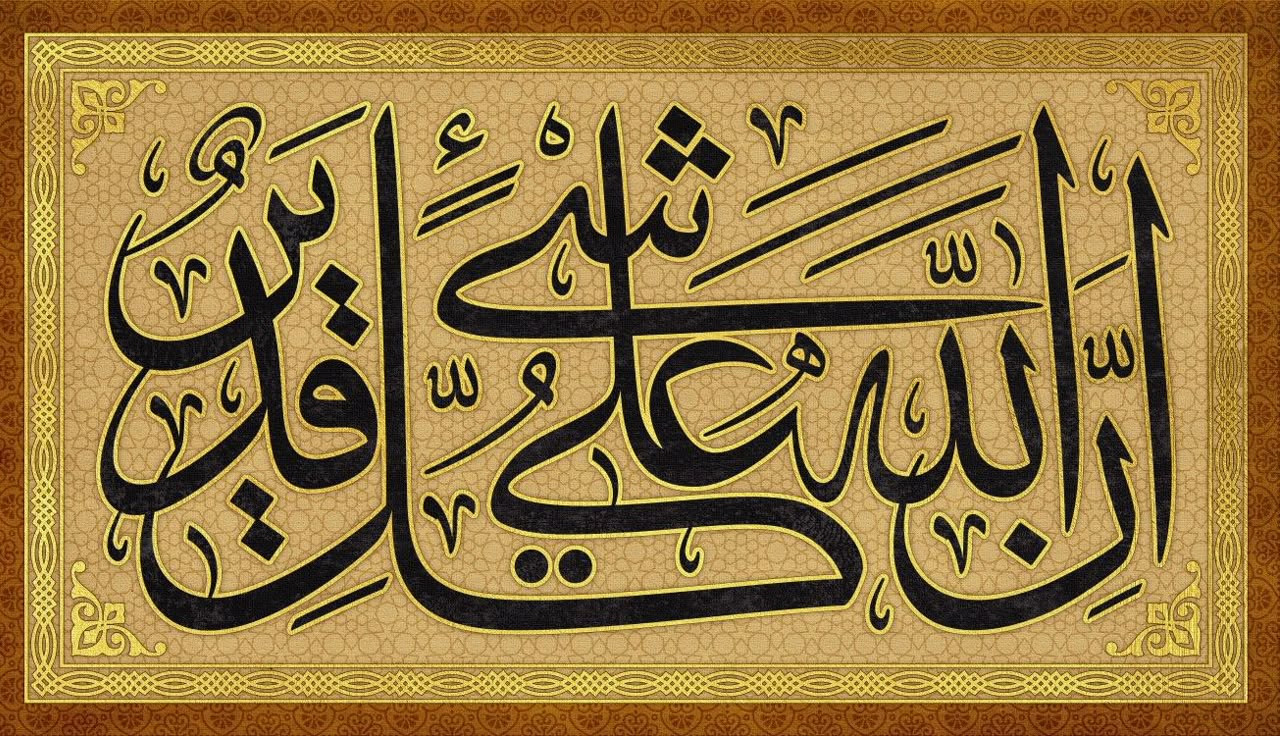 إِنَّ اللَّهَ عَلَى كُلِّ شَيْءٍ قَدِيرٌ